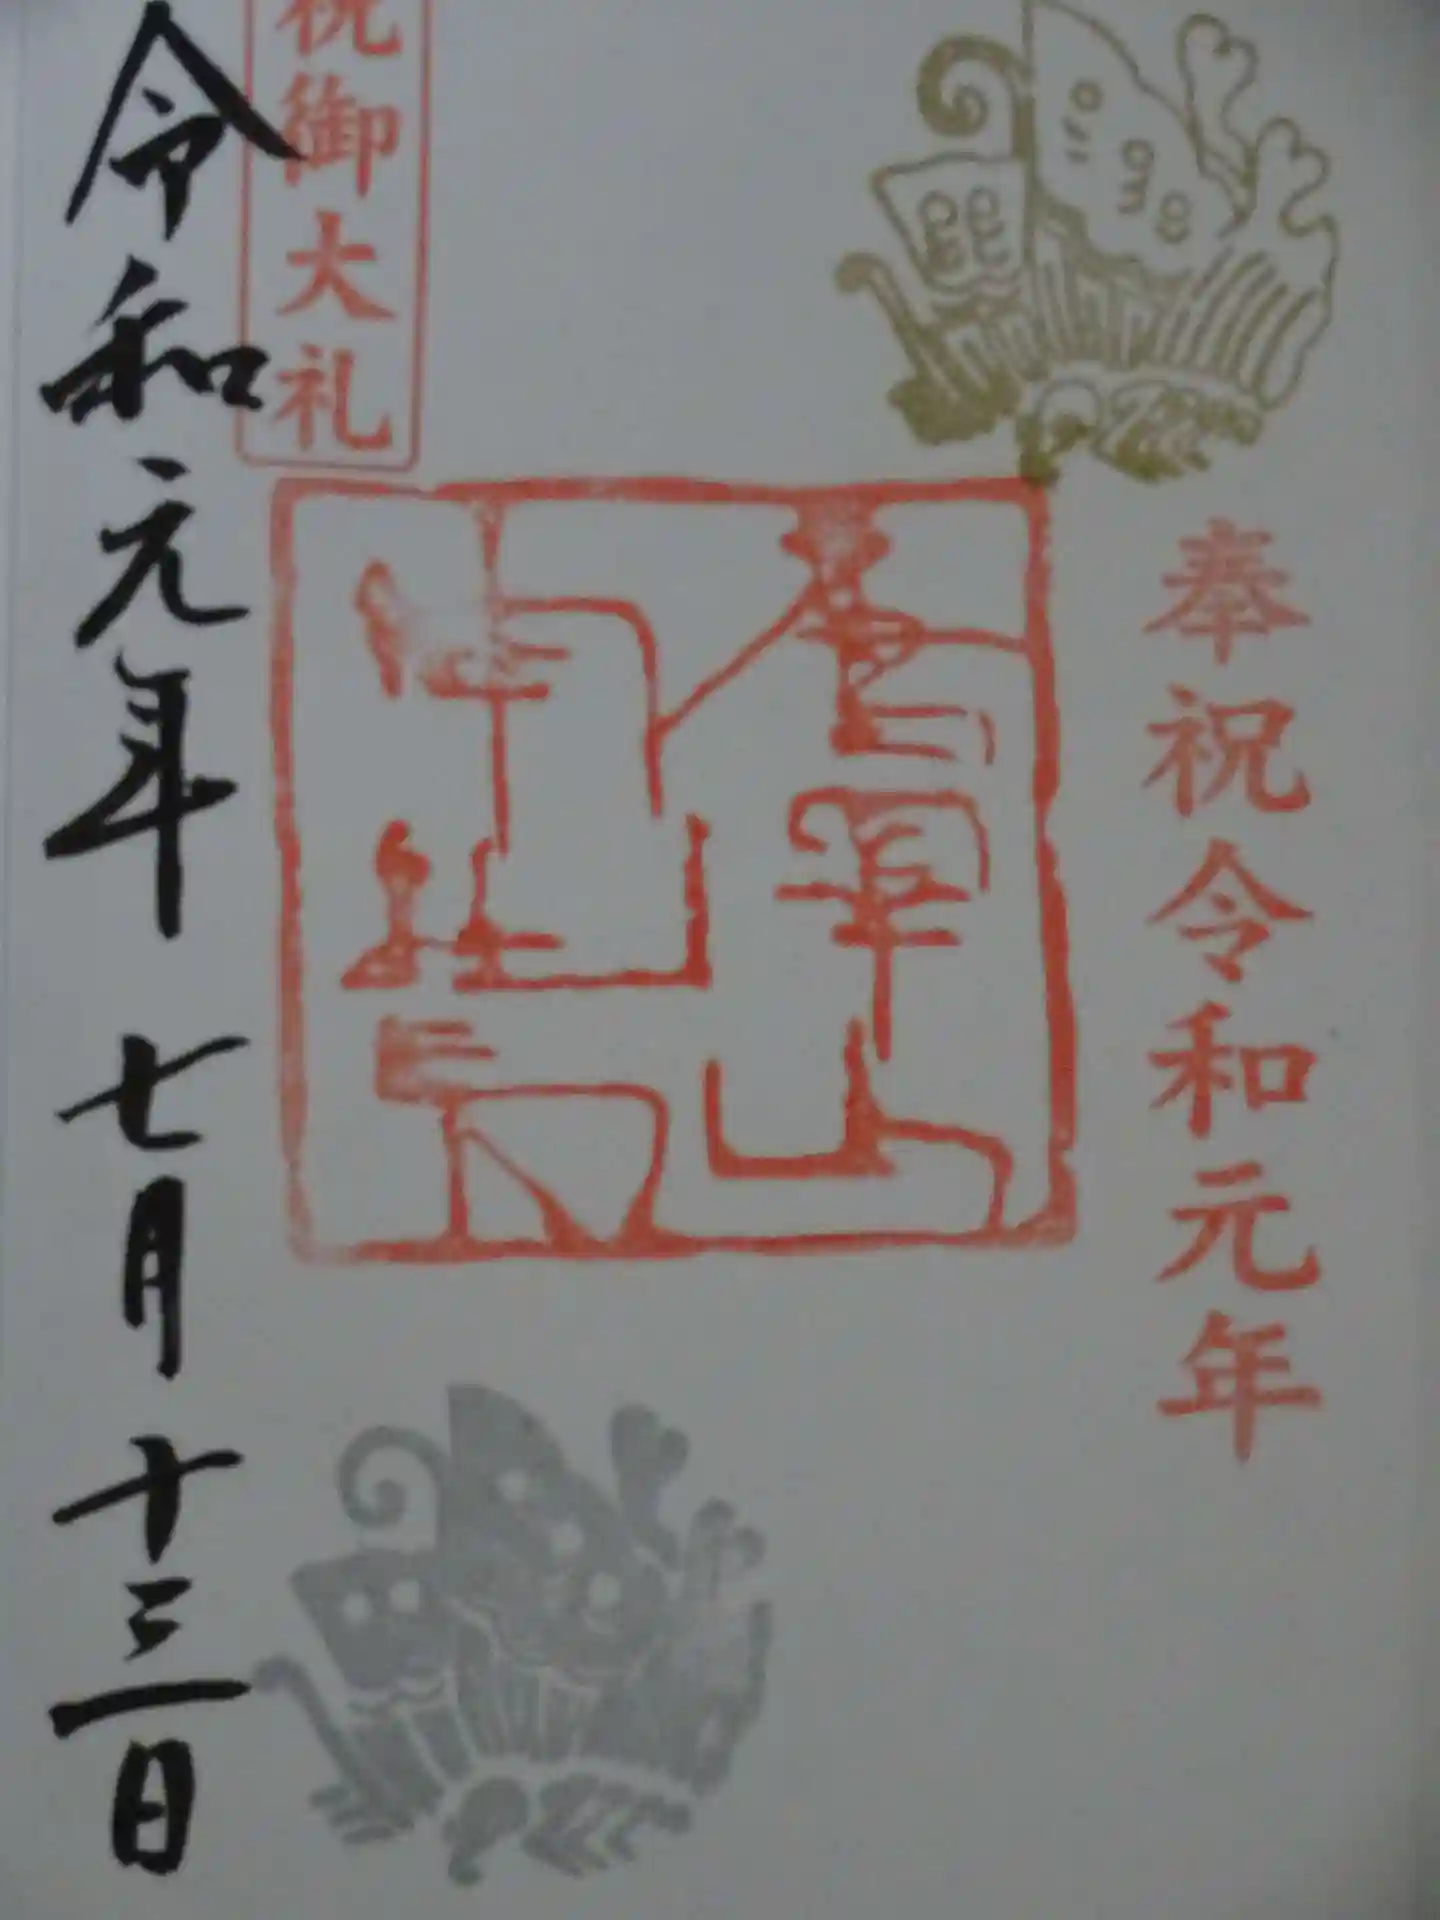 奉祝令和元年
祝御大礼
令和元年 七月十三日